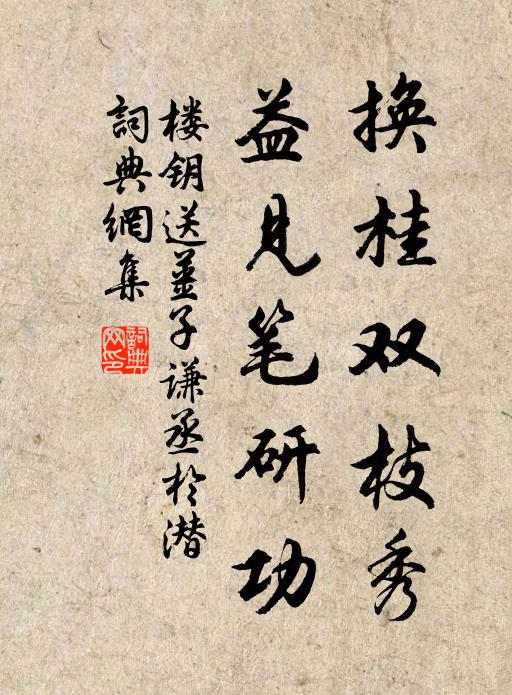 换桂双枝秀
益见笔研功
楼钥送姜子谦丞於潜
詞典網集
詞典網印